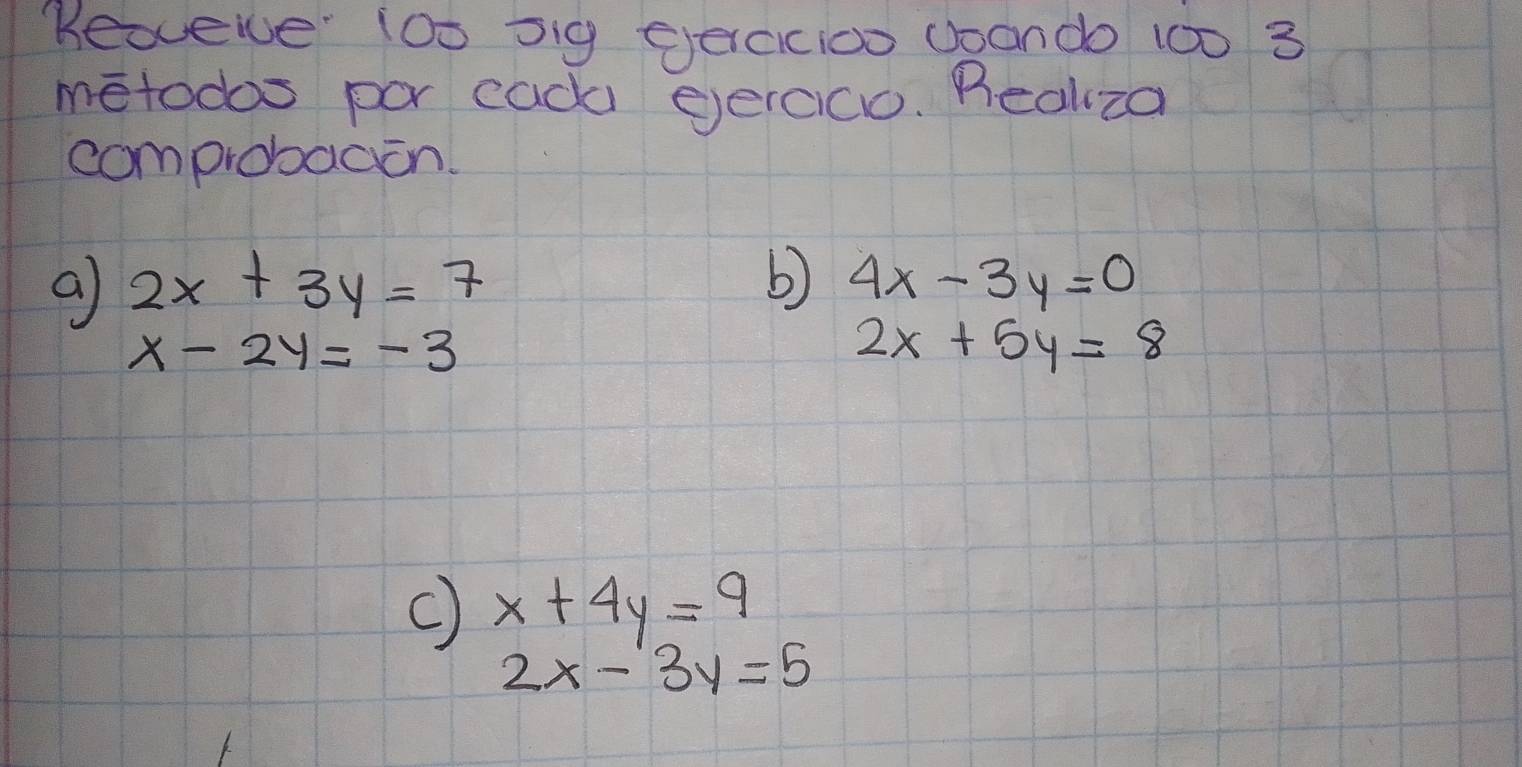 Resuelve los sig ejercicios usando los 3
métodos por cada ejercicio. Realiza
comprobación.
a) 2x + 3y = 7
x - 2y = -3
b) 4x - 3y = 0
2x + 5y = 8
c) x + 4y = 9
2x - 3y = 5